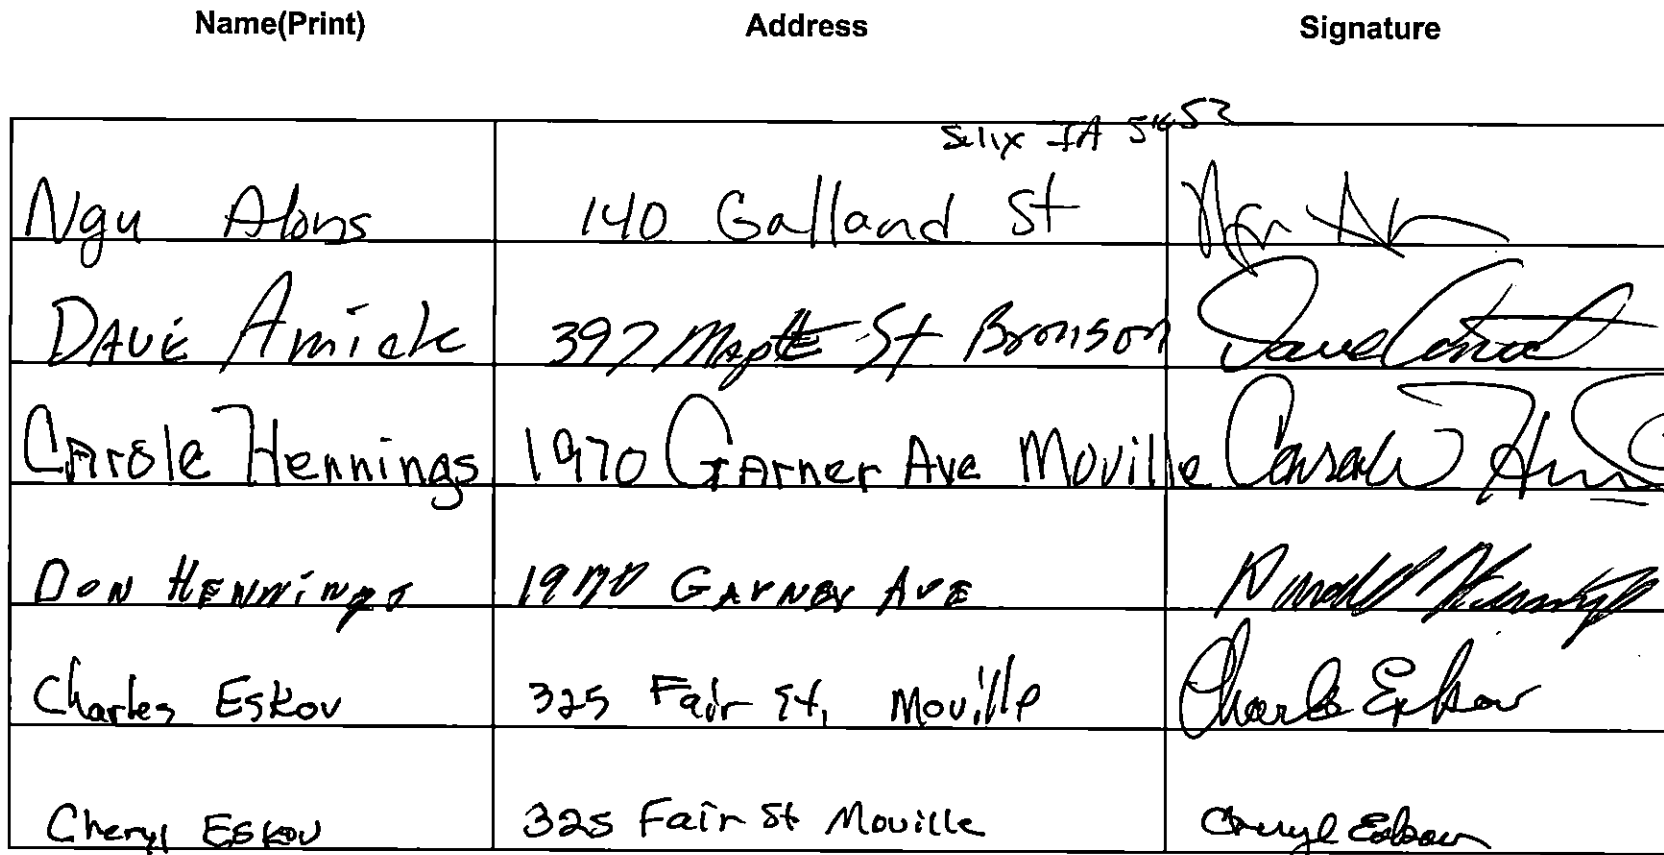 Name(Print) Address Signature
Salix IA
Ngu Alons 140 Galland St
DAVE Amick 397 Maple St Bronson Dave
Carole Hennings 1970 Garner Ave Moville
DON HENNINGS 1970 GARNER AVE
Charles Eskov 325 Fair St, Moville Charles Eskov
Cheryl Eskov 325 Fair St Moville Cheryl Eskov